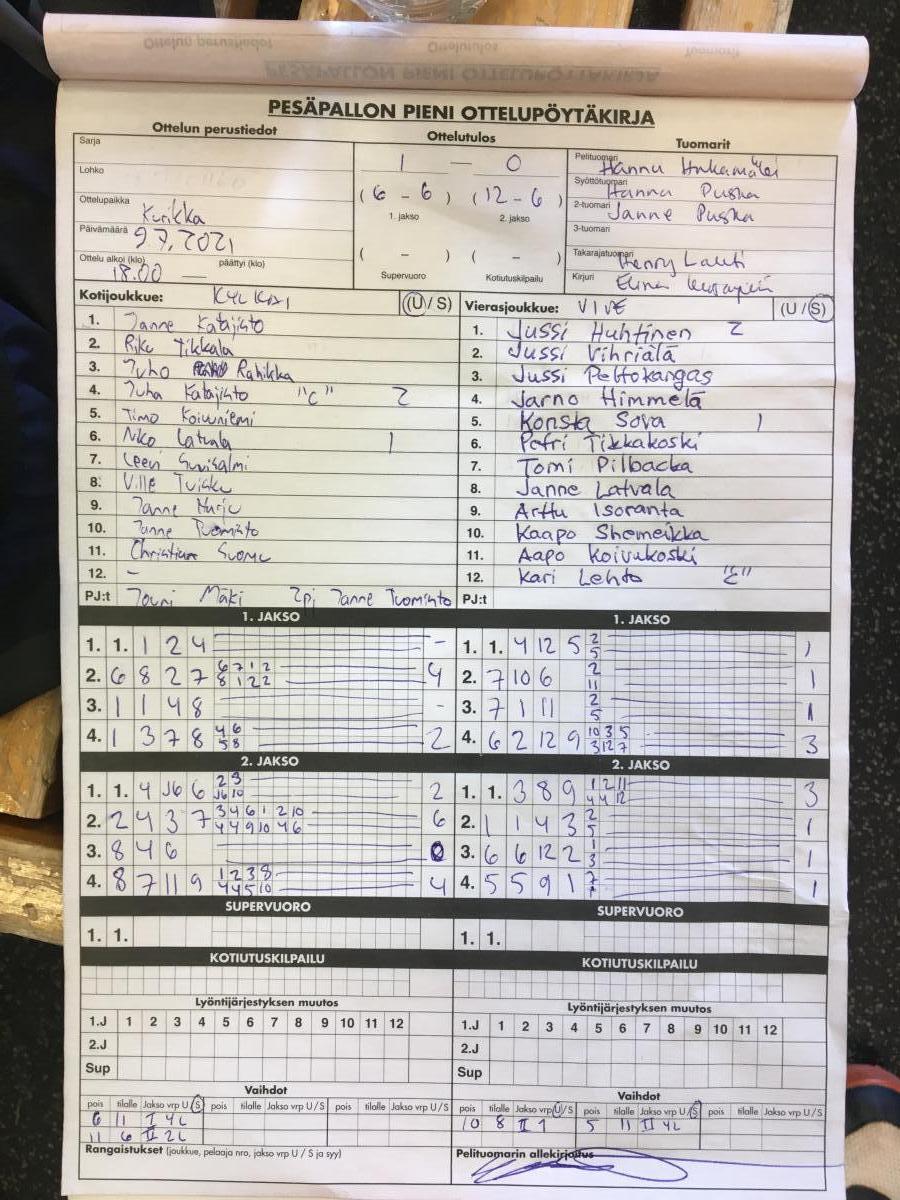 PESÄPALLON PIENI OTTELUPÖYTÄKIRJA
Ottelun perustiedot Ottelutulos Tuomarit
Sarja
Lohko
Ottelupaikka Kurikka
Päivämäärä 9.7.2021
Ottelu alkoi (klo) 18.00 päättyi (klo)
1 — 0
(6 - 6) (12 - 6)
1. jakso 2. jakso
( - ) ( - )
Supervuoro Kotiutuskilpailu
Pelituomari Hannu
Syöttötuomari Hannu Puska
2-tuomari Janne Puska
3-tuomari
Takarajatuomari Henry Lahti
Kirjuri
Kotijoukkue: (U / S) Vierasjoukkue: VIVE (U / S)
1. Janne Katajisto
2. Riku Tikkala
3. Juho Rahikka
4. Juha Katajisto "C" 2
5. Timo Koivuniemi
6. Niko Latvala 1
7. Leevi
8. Ville
9. Janne Harju
10. Janne Tuomisto
11. Christian Suomu
12. -
PJ:t Jouni Mäki 2pj Janne Tuomisto
1. Jussi Huhtinen 2
2. Jussi Vihriälä
3. Jussi Peltokangas
4. Jarno Himmelä
5. Konsta Sova 1
6. Petri Tikkakoski
7. Tomi Pilbacka
8. Janne Latvala
9. Arttu Isoranta
10. Kaapo Shemeikka
11. Aapo Koivukoski
12. Kari Lehto "C"
PJ:t
1. JAKSO 1. JAKSO
1. 1. 1 2 4 - 1. 1. 4 12 5 2 5 1
2. 6 8 2 7 6 7 1 2 8 1 2 2 4 2. 7 10 6 2 11 1
3. 1 1 4 8 - 3. 7 1 11 2 5 1
4. 1 3 7 8 4 6 5 8 2 4. 6 2 12 9 10 3 5 3 12 7 3
2. JAKSO 2. JAKSO
1. 1. 4 6 2 3 10 2 1. 1. 3 8 9 1 2 11 4 4 12 3
2. 2 4 3 7 3 4 6 1 2 10 4 4 9 10 4 6 6 2. 1 1 4 3 2 5 1
3. 8 4 6 0 3. 6 6 12 2 1 3 1
4. 8 7 11 9 1 2 3 8 4 4 5 10 4 4. 5 5 9 1 1
SUPERVUORO SUPERVUORO
1. 1. 1. 1.
KOTIUTUSKILPAILU KOTIUTUSKILPAILU
Lyöntijärjestyksen muutos Lyöntijärjestyksen muutos
1.J 1 2 3 4 5 6 7 8 9 10 11 12 1.J 1 2 3 4 5 6 7 8 9 10 11 12
2.J 2.J
Sup Sup
Vaihdot Vaihdot
pois tilalle Jakso vrp U/S pois tilalle Jakso vrp U/S pois tilalle Jakso vrp U/S pois tilalle Jakso vrp U/S pois tilalle Jakso vrp U/S pois tilalle Jakso vrp U/S
6 11 I 4L 10 8 II 1 5 11 II 4L
11 6 II 2L
Rangaistukset (joukkue, pelaaja nro, jakso vrp U / S ja syy) Pelituomarin allekirjoitus